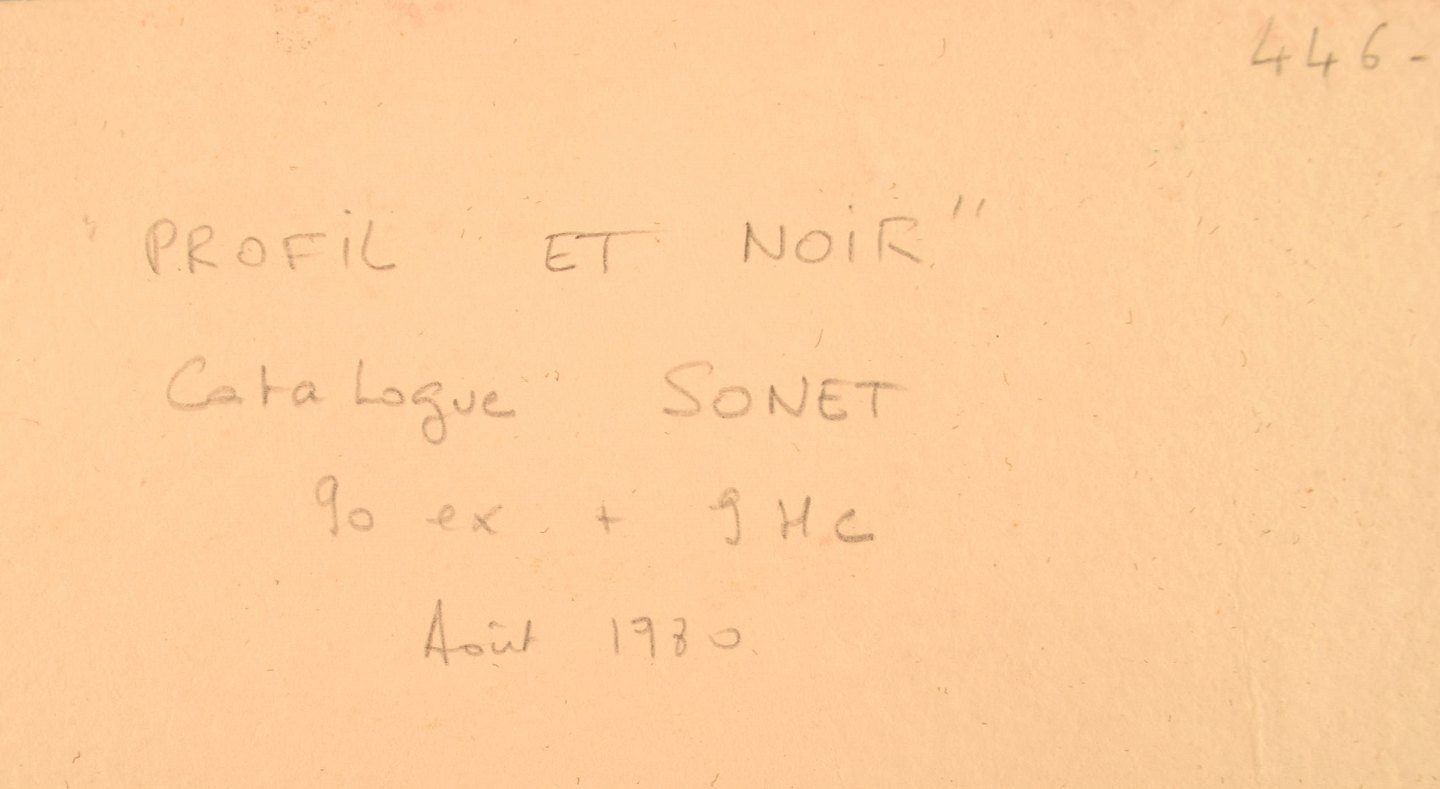 446-
"PROFIL ET NOIR"
Catalogue SONET
90 ex + 9 HC
Août 1980